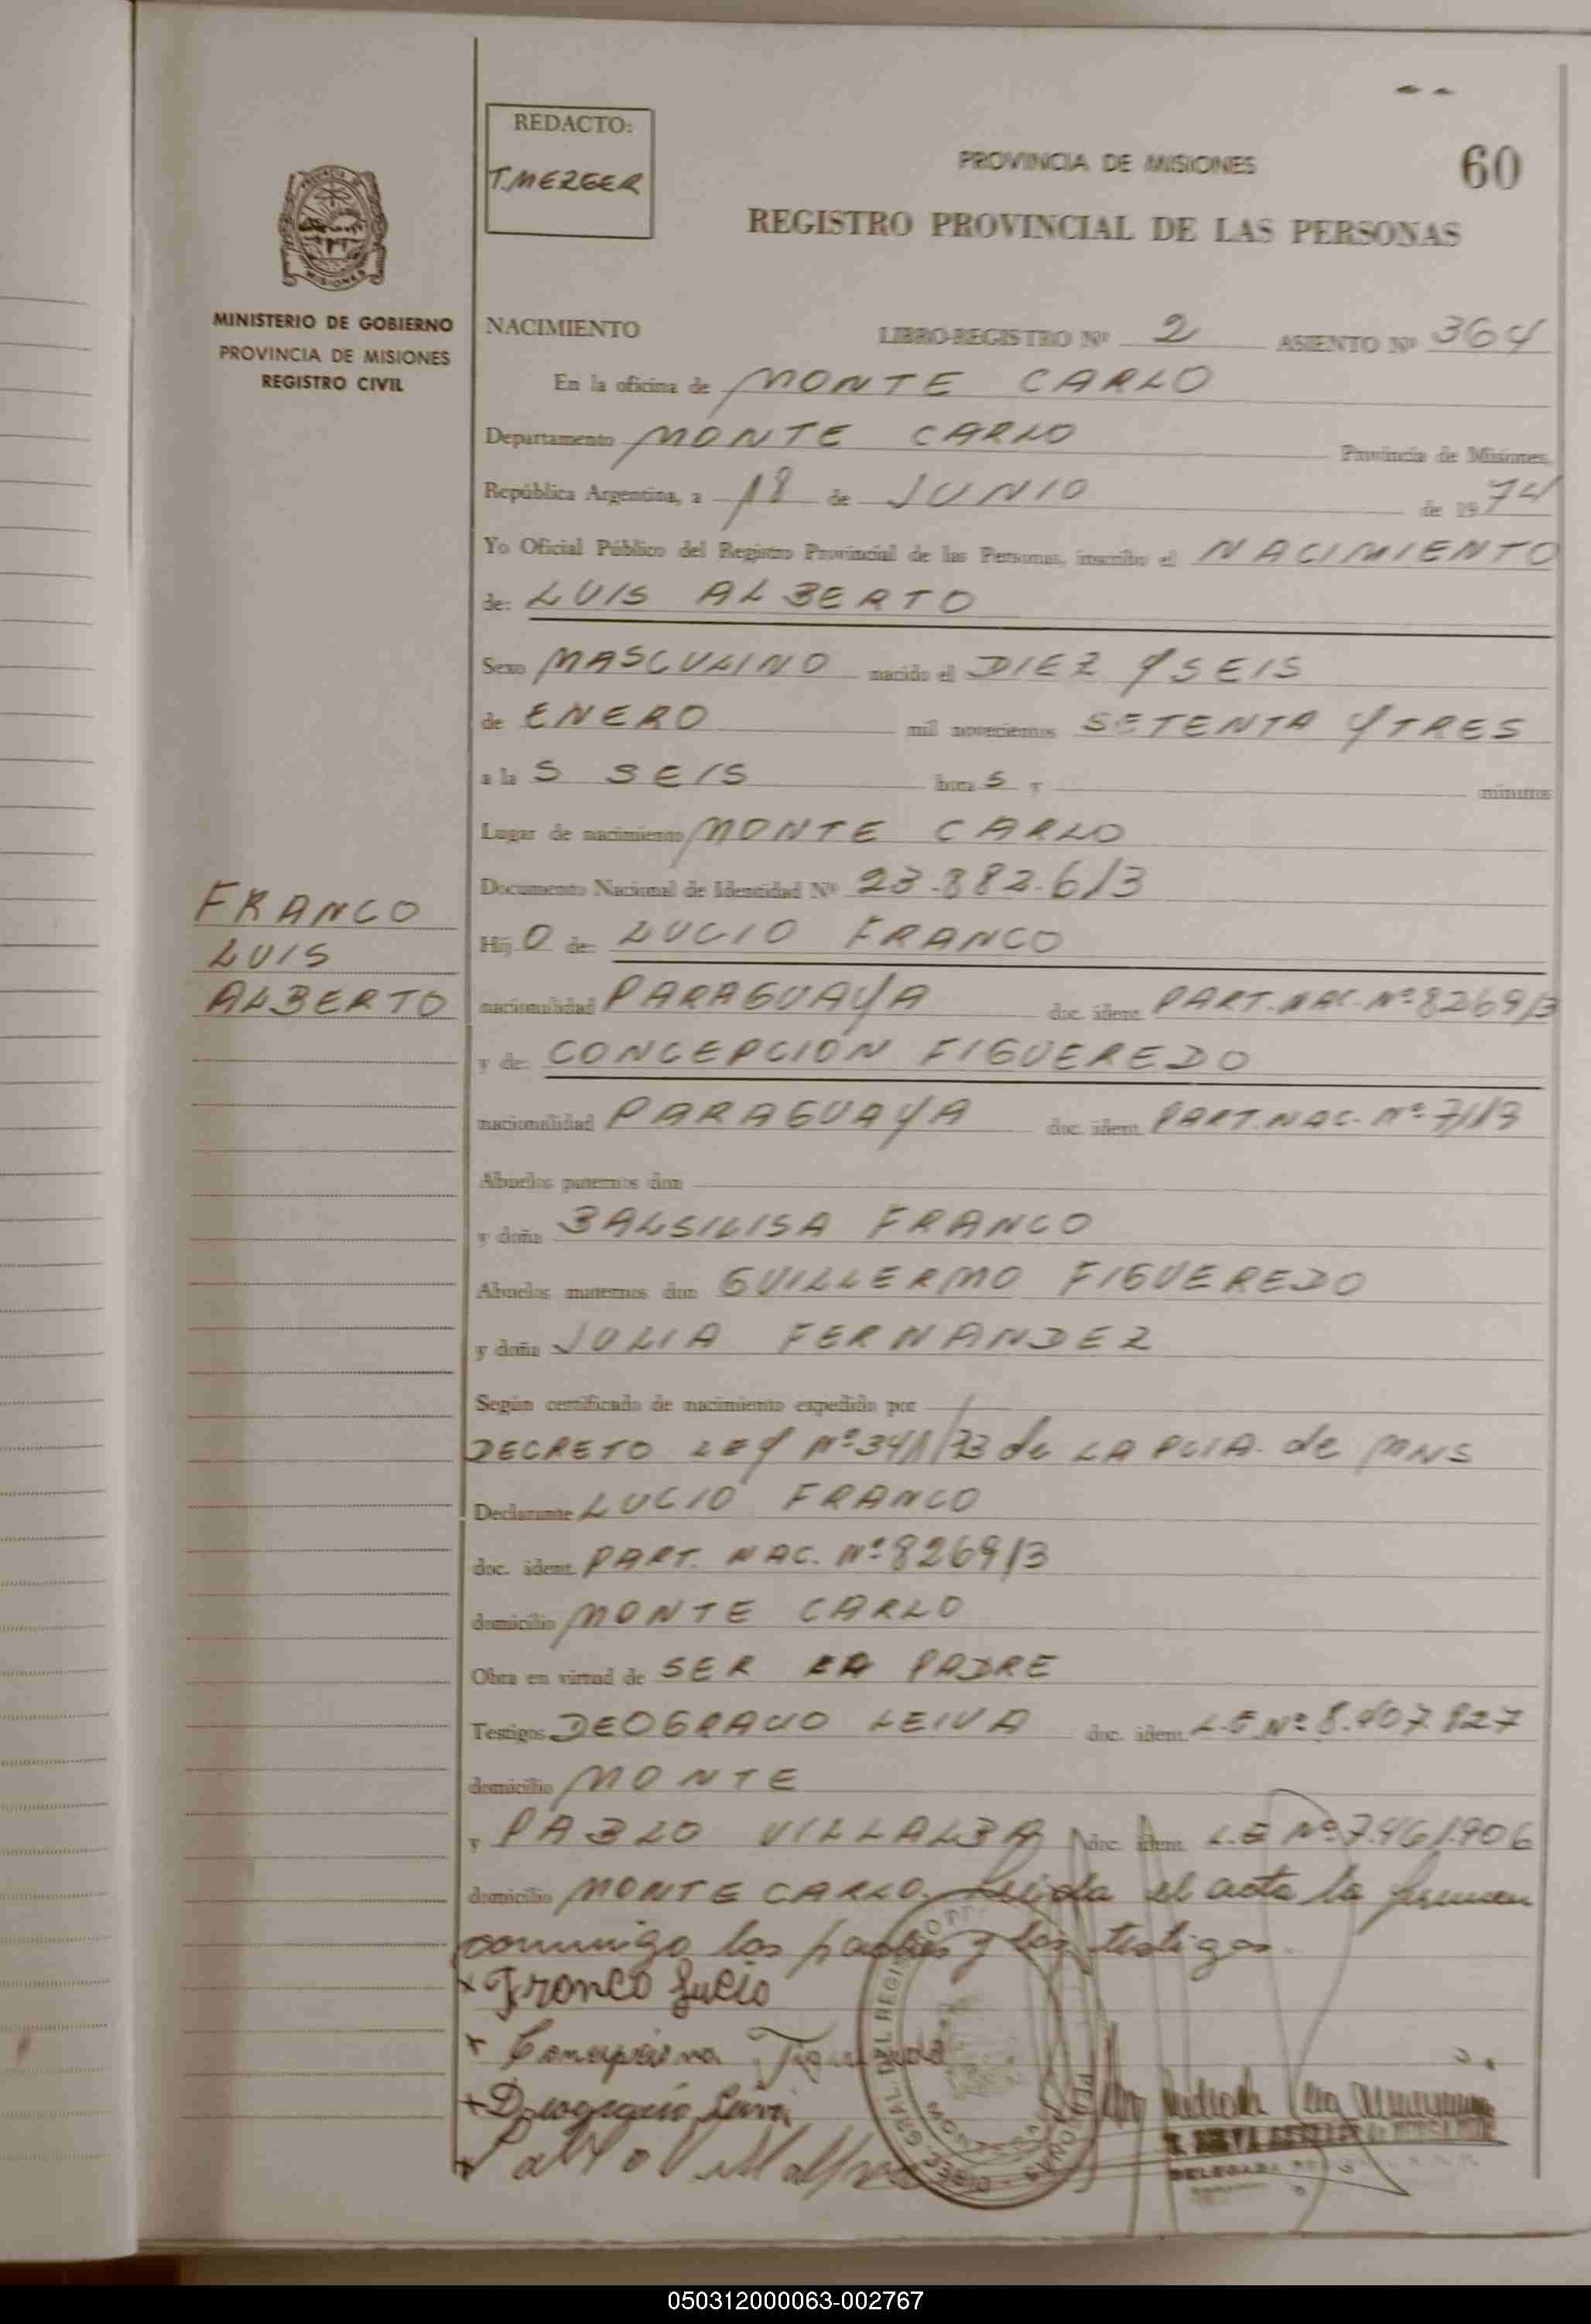 REDACTO:
T. MEZGER
PROVINCIA DE MISIONES
60
REGISTRO PROVINCIAL DE LAS PERSONAS
MINISTERIO DE GOBIERNO
PROVINCIA DE MISIONES
REGISTRO CIVIL
NACIMIENTO LIBRO-REGISTRO Nº 2 ASIENTO Nº 364
En la oficina de MONTE CARLO
Departamento MONTE CARLO Provincia de Misiones,
República Argentina, a 18 de JUNIO de 1974
Yo Oficial Público del Registro Provincial de las Personas, inscribo el NACIMIENTO
de: LUIS ALBERTO
Sexo MASCULINO nacido el DIEZ Y SEIS
de ENERO mil novecientos SETENTA Y TRES
a la S SEIS hora S y minutos
Lugar de nacimiento MONTE CARLO
Documento Nacional de Identidad Nº 23.882.613
FRANCO
LUIS
ALBERTO
Hij O de: LUCIO FRANCO
nacionalidad PARAGUAYA doc. ident. PART. NAC. Nº 8269/3
y de: CONCEPCION FIGUEREDO
nacionalidad PARAGUAYA doc. ident. PART. NAC. Nº
Abuelos paternos don
y doña BALSILISA FRANCO
Abuelos maternos don GUILLERMO FIGUEREDO
y doña JULIA FERNANDEZ
Según certificado de nacimiento expedido por
DECRETO LEY Nº 341/73 de LA PCIA. de MNS
Declarante LUCIO FRANCO
doc. ident. PART. NAC. Nº 8269/3
domicilio MONTE CARLO
Obra en virtud de SER PADRE
Testigos DEOGRACIO LEIVA doc. ident. L.E Nº 8.407.827
domicilio MONTE
y PABLO VILLALBA doc. ident. L.E Nº 7.461.906
domicilio MONTE CARLO. Leida el acta la firman
conmigo los padres y los testigos.
x Franco Lucio
x
x Deogracio Leiva
x Pablo Villalba
DELEGADA
050312000063-002767